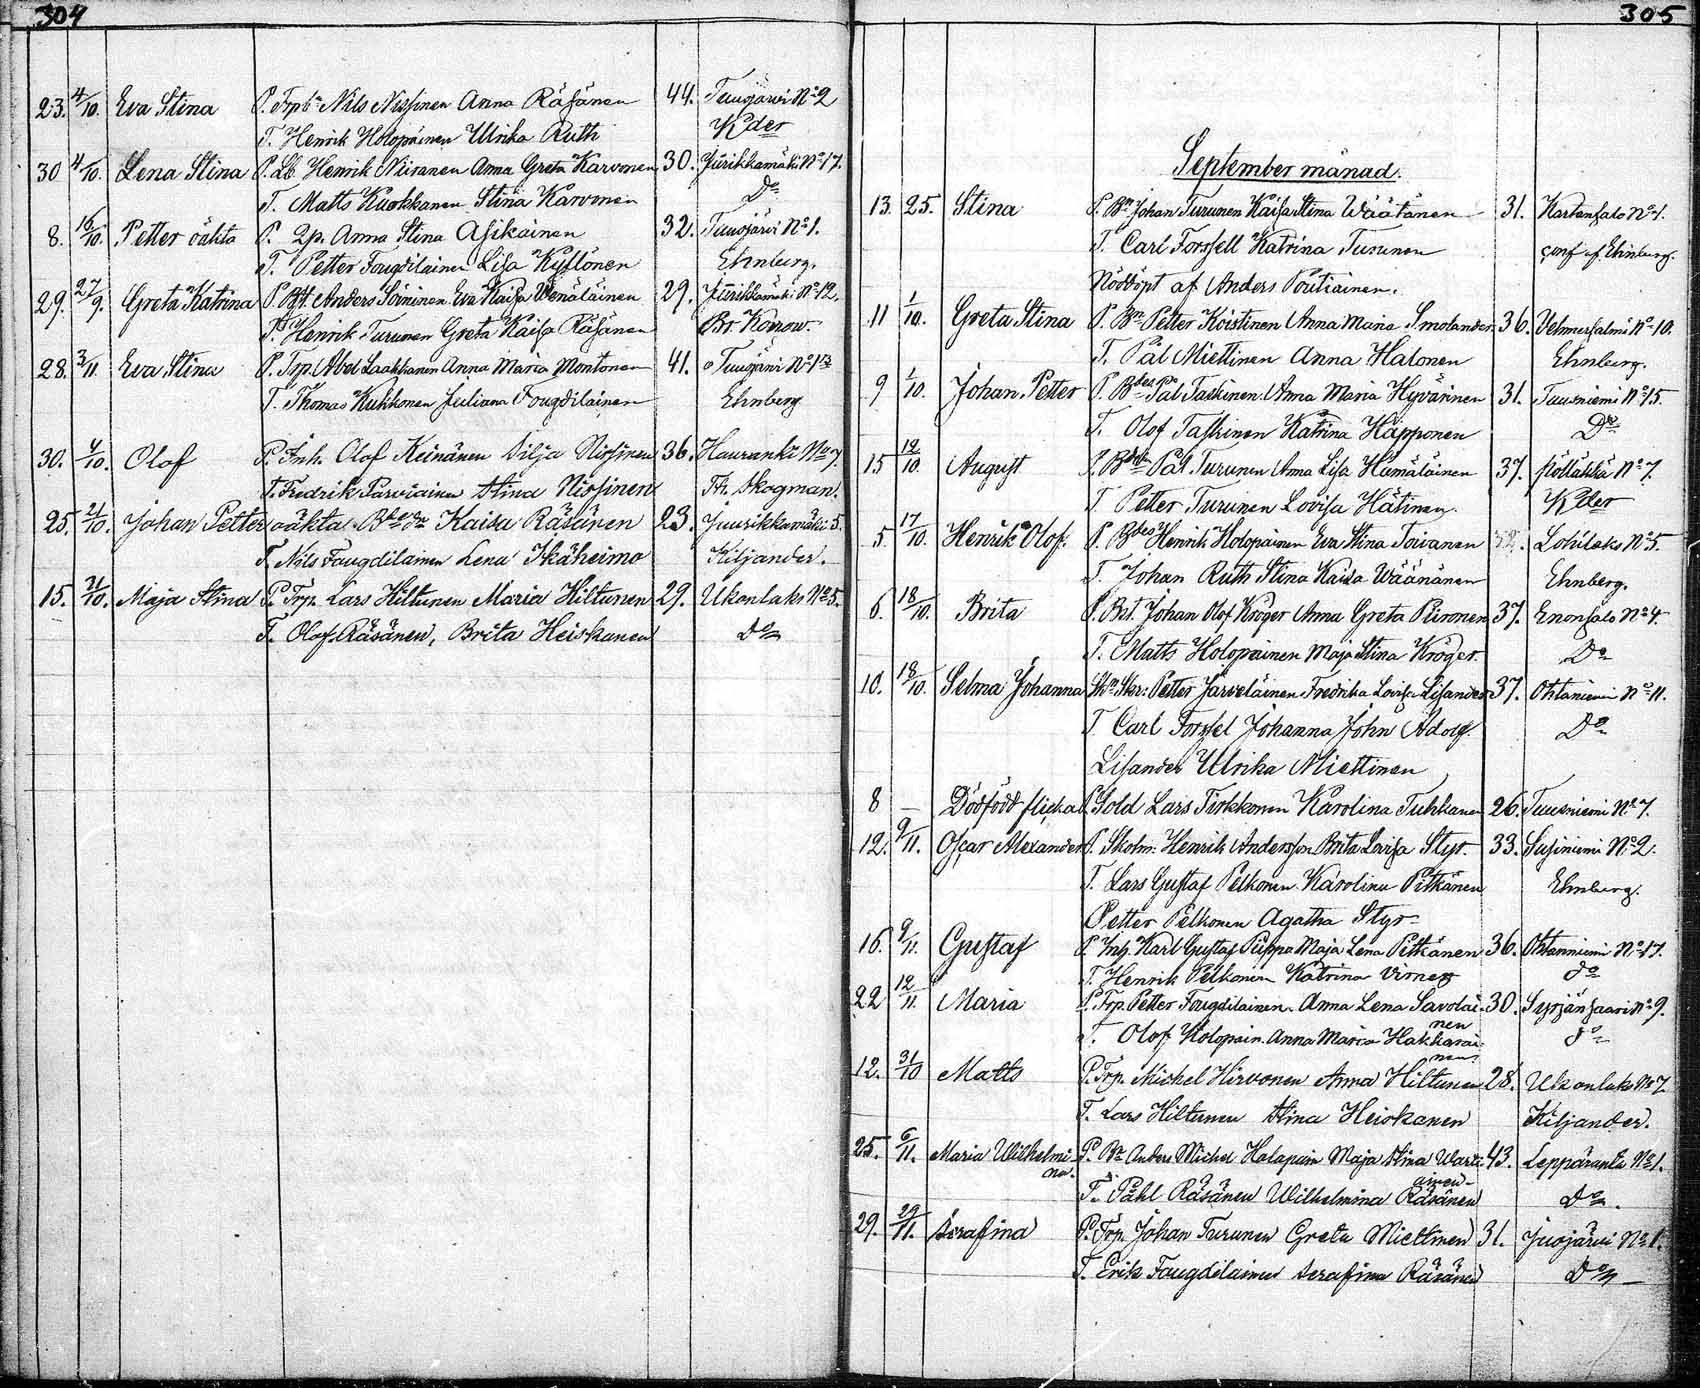 304
23. 4/10. Eva Stina P. Trp. Nils Nissinen Anna Räsänen 44. Tuusjärvi No 2
T. Henrik Holopainen Ulrika Ruth Kder
30 4/10. Lena Stina P. Lb. Henrik Niiranen Anna Greta Karvonen 30. Juurikkamäki No 17.
T. Matts Kuokkanen Stina Karvonen Do
8. 16/10. Petter oäkta P. Anna Stina Asikainen 32. Tuusjärvi No 1.
T. Petter Fougdilainen Lisa Kyllönen Ehnberg.
29. 27/9. Greta Katrina P. Anders Soininen Eva Kaisa Wenäläinen 29. Juurikkamäki No 12.
T. Henrik Turunen Greta Kaisa Räsänen
28. 3/11 Eva Stina P. Trp. Abel Laakkanen Anna Maria Montonen 41. Tuusjärvi No 1
T. Thomas Kukkonen Juliana Fougdilainen Ehnberg
30. 4/10. Olof P. Inh. Olof Keinänen Silja Nissinen 36. Hauranki No 7.
T. Fredrik Parviainen Stina Nissinen Th. Skogman.
25. 21/10. Johan Petter oäkta Kaisa Räsänen 23. Juurikkamäki 5.
T. Nils Faugdilainen Lena Ikäheimo Kiljander.
15. 31/10. Maja Stina P. Trp. Lars Hiltunen Maria Hiltunen 29. Ukonlaks No 5.
T. Olof Räsänen, Brita Heiskanen Do
305
September månad.
13. 25. Stina P. Bn Johan Turunen Kaisa Stina Wäätänen 31. Kartansalo No 1.
T. Carl Forssell Katrina Turunen conf. af. Ehnberg.
Nöddöpt af Anders Poutiainen.
11 1/10. Greta Stina P. Bn Petter Koistinen Anna Maria Smolander 36. Vehmersalmi No 10.
T. Pål Miettinen Anna Halonen Ehnberg.
9 1/10. Johan Petter P. Pål Taskinen Anna Maria Hyvärinen 31. Tuusniemi No 15.
T. Olof Taskinen Katrina Häpponen Do
15 12/10. August P. Pål Turunen Anna Lisa Hämäläinen 37. No 7.
T Petter Turunen Lovisa Hätinen. Kder
5. 17/10. Henrik Olof. P. Henrik Holopainen Eva Stina Toivanen Lohilaks No 5.
T. Johan Ruth Stina Kaisa Wäänänen Ehnberg.
6. 18/10. Brita P. Johan Olof Kröger Anna Greta Piironen 37. Enonsalo No 4.
T. Matts Holopainen Maja Stina Kröger. Do
10. 18/10. Selma Johanna Petter Järveläinen Fredrika Lovisa Lisander 37. Ohtaniemi No 11.
T Carl Forssel Johanna John Adolf Do
Lisander Ulrika Miettinen
8 — Dödfödd flicka P. Sold Lars Tirkkonen Karolina Tuhkanen 26. Tuusniemi No 7.
12. 9/11. Oscar Alexander P. Skolm. Henrik Andersson Brita Lovisa Styr. 33. Susiniemi No 2.
T. Lars Gustaf Pelkonen Karolina Pitkänen Ehnberg.
Petter Pelkonen Agatha Styr
16. 9/11. Gustaf P. Inh. Karl Gustaf Piippa Maja Lena Pitkänen 36. Ohtaniemi No 17.
T. Henrik Pelkonen Katrina do
22 12/11. Maria P. Trp. Petter Fougdilainen Anna Lena Savolai- 30. Syrjänsaari No 9.
nen
T. Olof Holopain. Anna Maria Hakkarai- do
nen
12. 31/10 Matts P. Trp. Michel Hirvonen Anna Hiltunen 28. Ukonlaks No 7
T. Lars Hiltunen Stina Heiskanen Kiljander.
25. 6/11. Maria Wilhelmi- P. Bn Anders Michel Holapain Maja Stina Warti- 43. Leppäranta No 1.
na. ainen
T. Påhl Räsänen Wilhelmina Räsänen Do.
29. 29/11. Serafina P. Trp. Johan Turunen Greta Miettinen 31. Juojärvi No 1.
T. Erik Faugdilainen Serafina Räsänen Do